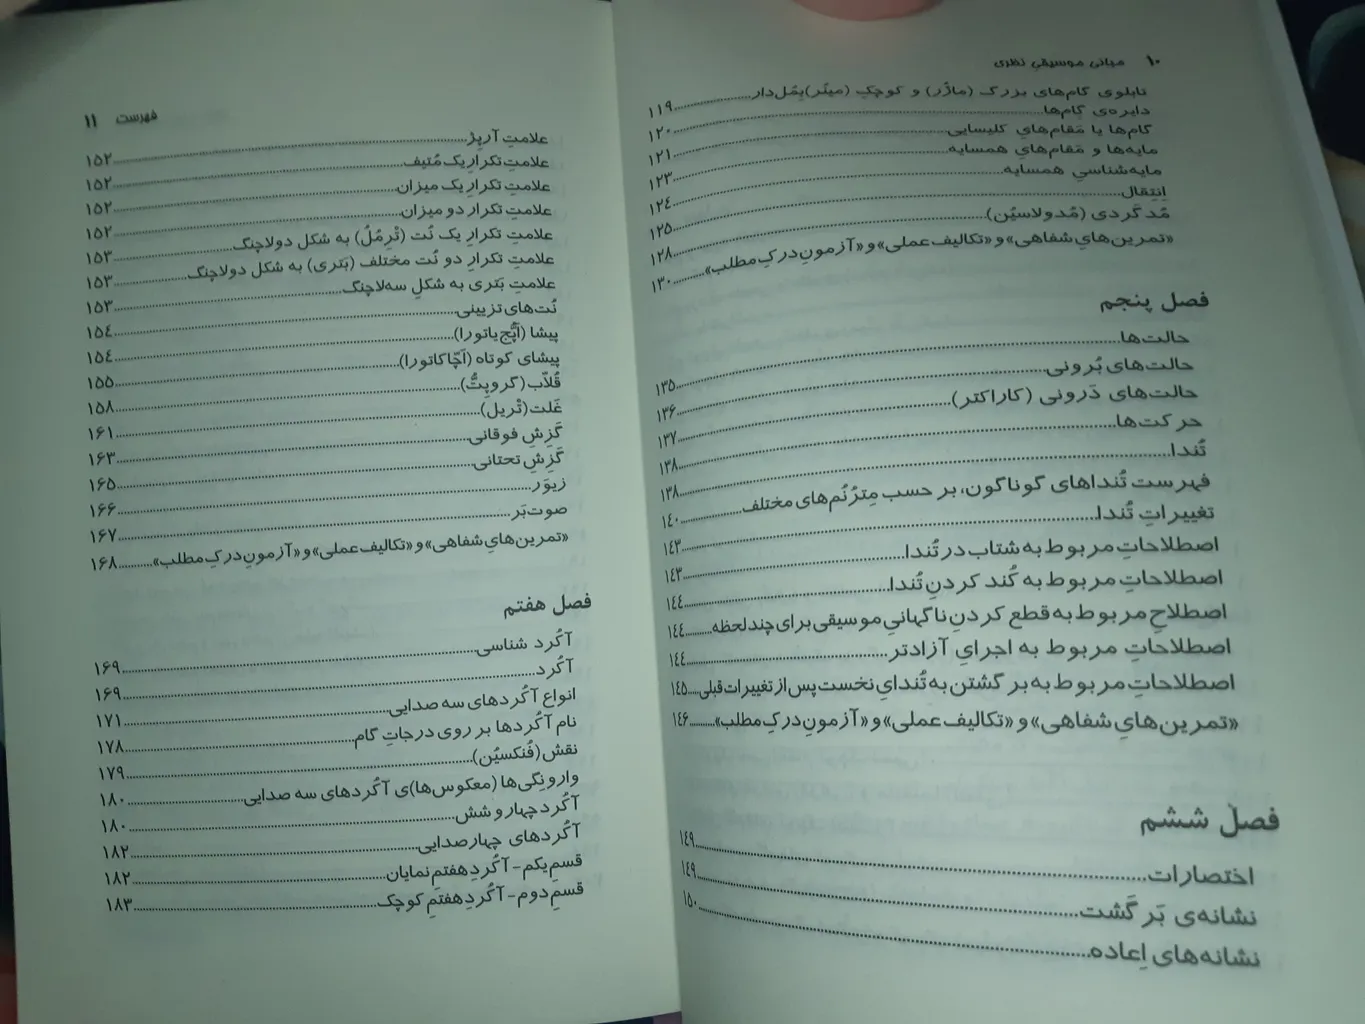 ۱۰ مبانی موسیقیِ نظری
تابلوی گام‌های بزرگ (ماژُر) و کوچکِ (مینُر)بِمُل‌دار..........۱۱۹
دایره‌ی گام‌ها..........۱۲۰
گام‌ها یا مَقام‌هایِ کلیسایی..........۱۲۱
مایه‌ها و مَقام‌هایِ همسایه..........۱۲۳
مایه‌شناسیِ همسایه..........۱۲۴
اِنتِقال..........۱۲۵
مُد گَردی (مُدولاسیُن)..........۱۲۸
«تمرین‌هایِ شفاهی» و «تکالیف عملی» و «آزمونِ درکِ مطلب»..........۱۳۰
فصل پنجم
حالت‌ها..........۱۳۵
حالت‌های بُرونی..........۱۳۶
حالت‌های دَرونی (کاراکتر)..........۱۳۷
حرکت‌ها..........۱۳۸
تُندا..........۱۳۸
فهرست تُنداهای گوناگون، بر حسب مِترُنُم‌های مختلف..........۱۴۰
تغییراتِ تُندا..........۱۴۳
اصطلاحاتِ مربوط به شتاب در تُندا..........۱۴۳
اصطلاحاتِ مربوط به کُند کردنِ تُندا..........۱۴۴
اصطلاحِ مربوط به قطع کردنِ ناگهانیِ موسیقی برای چند لحظه..........۱۴۴
اصطلاحاتِ مربوط به اجرایِ آزادتر..........۱۴۴
اصطلاحاتِ مربوط به بر گشتن به تُندایِ نخست پس از تغییرات قبلی.....۱۴۵
«تمرین‌هایِ شفاهی» و «تکالیف عملی» و «آزمونِ درکِ مطلب»..........۱۴۶
فصل ششم
اختصارات..........۱۴۹
نشانه‌ی بَر گَشت..........۱۴۹
نشانه‌های اِعاده..........۱۵۰
فهرست ۱۱
علامتِ آرپِژ..........۱۵۲
علامتِ تکرارِ یک مُتیف..........۱۵۲
علامتِ تکرارِ یک میزان..........۱۵۲
علامتِ تکرار دو میزان..........۱۵۲
علامتِ تکرارِ یک نُت (تْرِمُلُ) به شکل دولاچنگ..........۱۵۳
علامتِ تکرارِ دو نُت مختلف (بَتری) به شکل دولاچنگ..........۱۵۳
علامتِ بَتری به شکلِ سه‌لاچنگ..........۱۵۳
نُت‌های تزیینی..........۱۵۴
پیشا (آپُّج‌یاتورا)..........۱۵۴
پیشای کوتاه (آچّاکاتورا)..........۱۵۵
قُلاّب (گروپِتُّ)..........۱۵۸
غَلت(تْریل)..........۱۶۱
گَزِشِ فوقانی..........۱۶۳
گَزِشِ تحتانی..........۱۶۵
زیوَر..........۱۶۶
صوت‌بَر..........۱۶۷
«تمرین‌هایِ شفاهی» و «تکالیف عملی» و «آزمونِ درکِ مطلب»..........۱۶۸
فصل هفتم
آکُرد شناسی..........۱۶۹
آکُرد..........۱۶۹
انواع آکُردهای سه صدایی..........۱۷۱
نام آکُردها بر روی درجاتِ گام..........۱۷۸
نقش (فُنکسیُن)..........۱۷۹
وارونگی‌ها (معکوس‌ها)ی آکُردهای سه صدایی..........۱۸۰
آکُردِ چهار و شش..........۱۸۰
آکُردهای چهارصدایی..........۱۸۲
قسمِ یکم - آکُردِ هفتمِ نمایان..........۱۸۲
قسمِ دوم - آکُردِ هفتمِ کوچک..........۱۸۳